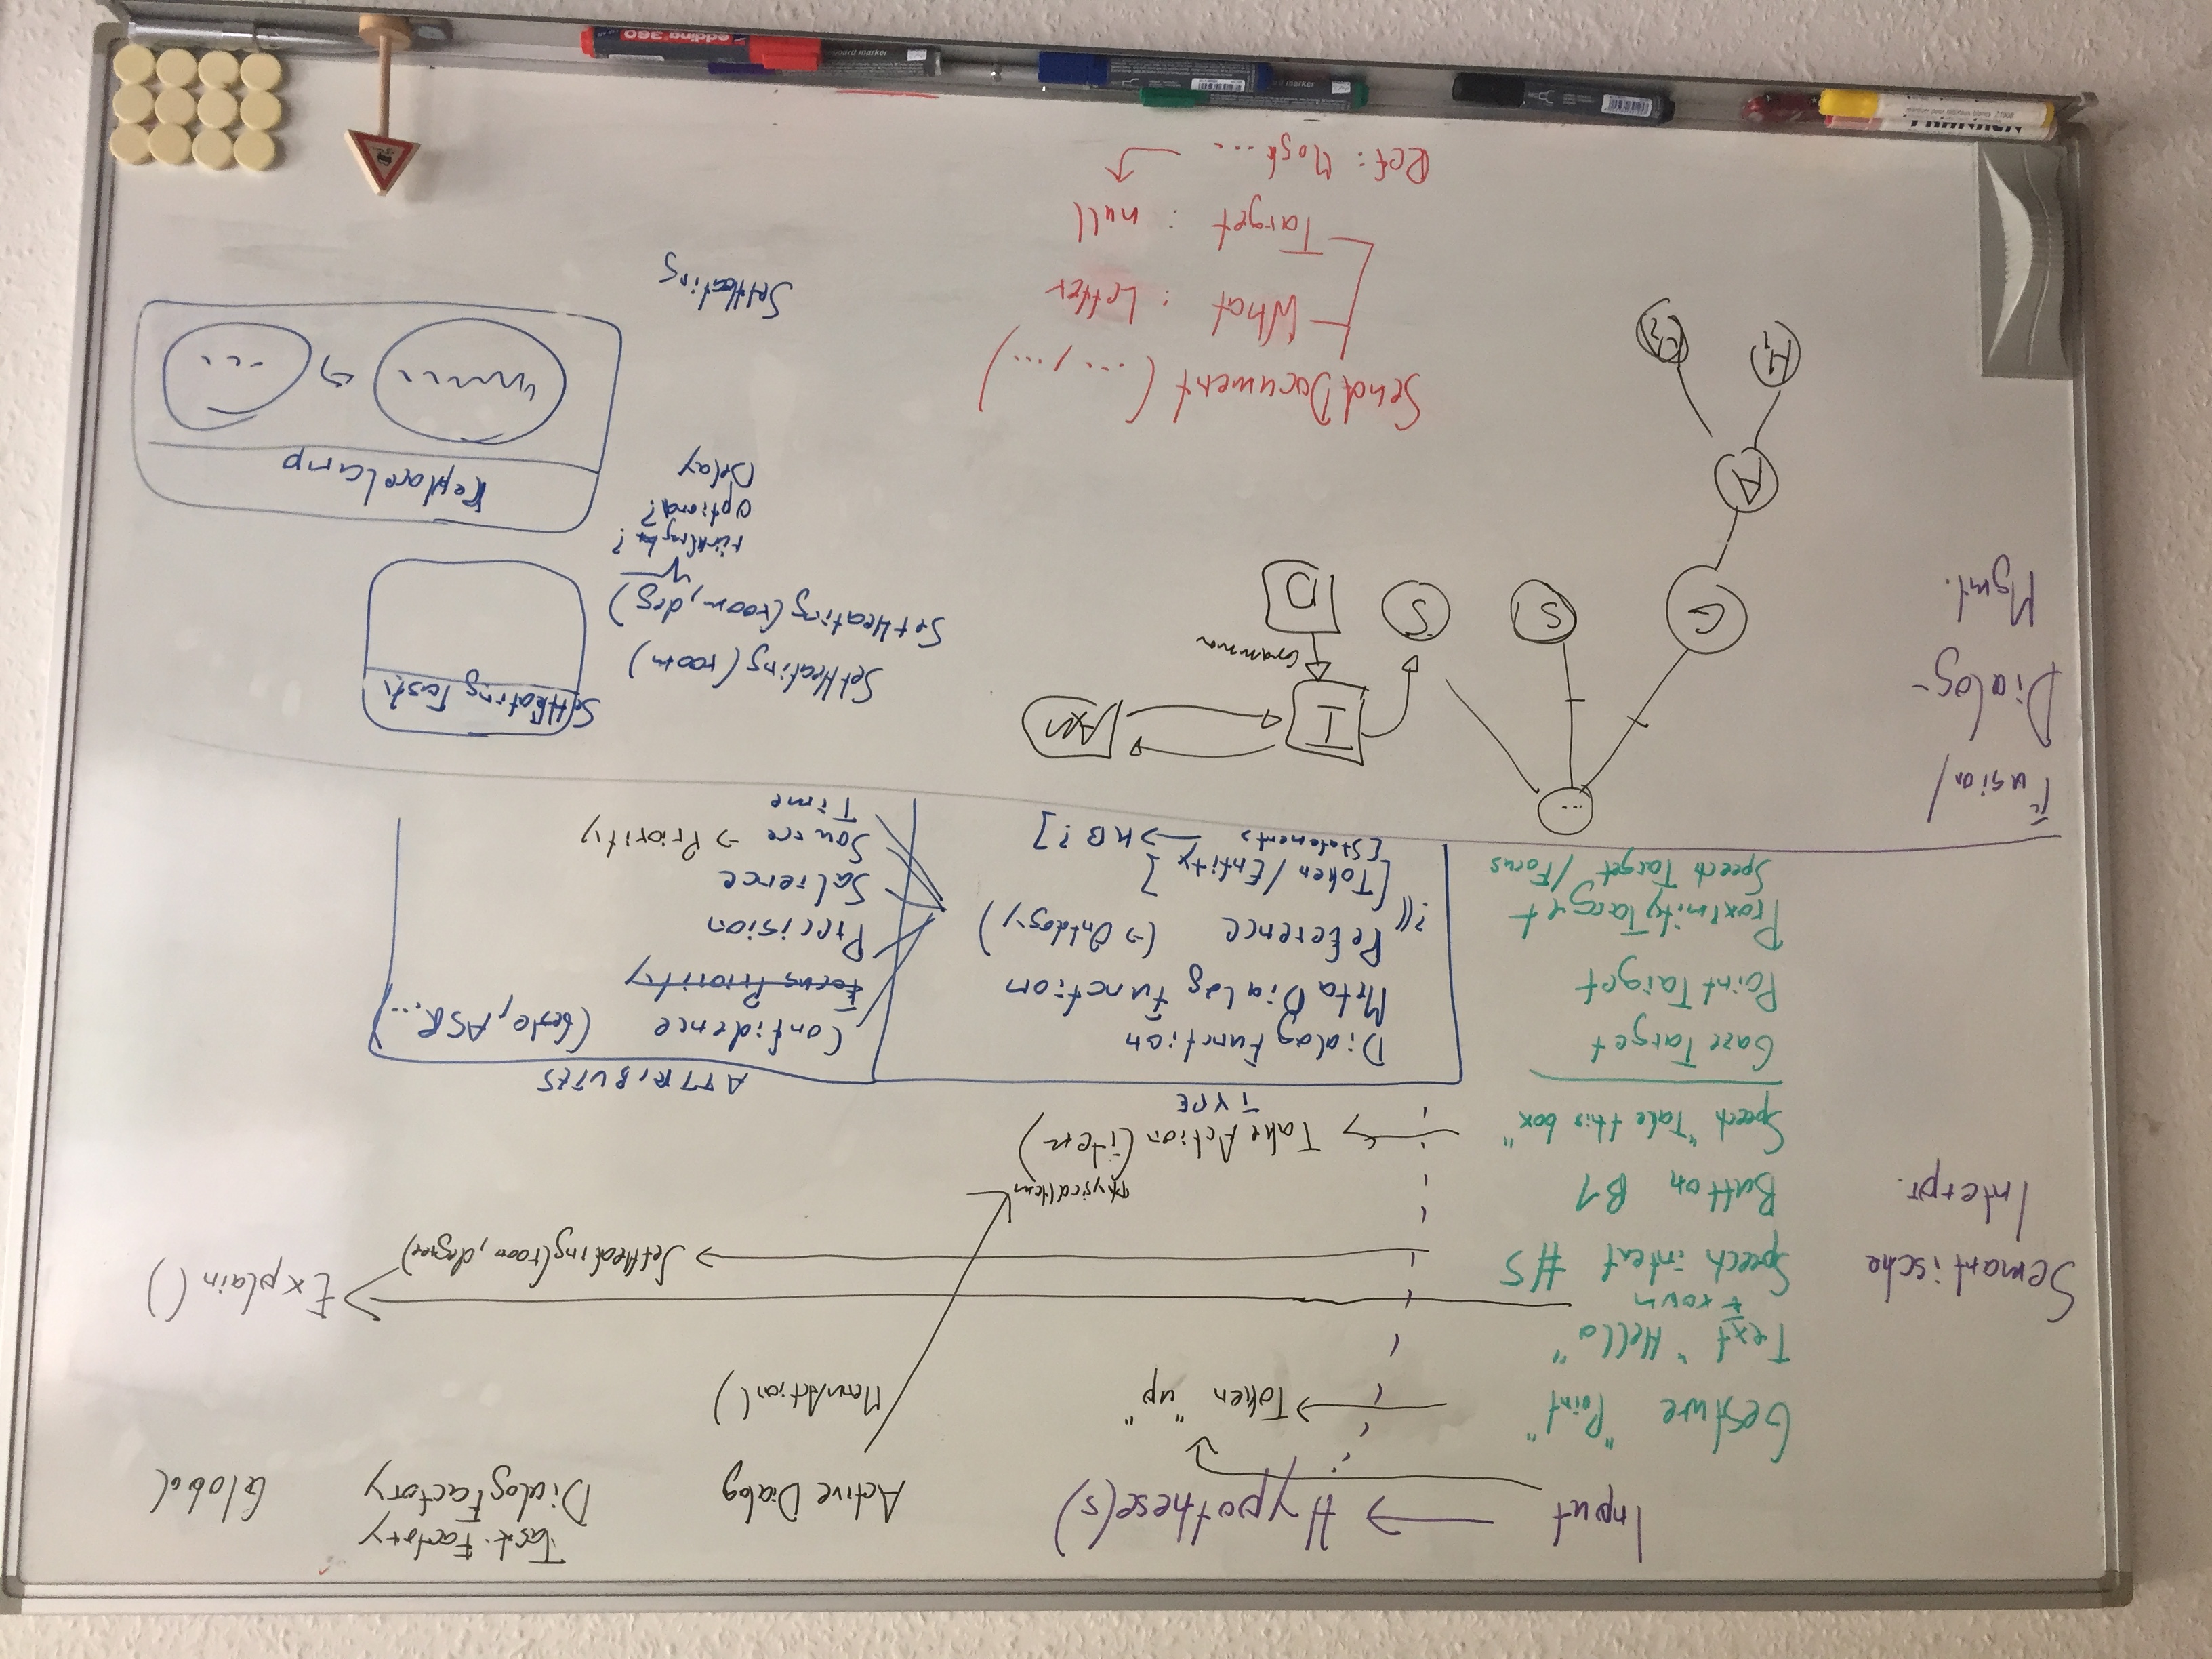 Input → Hypothese(s)
Active Dialog
Task-Factory
DialogFactory
Global
Gesture "Point"
→ Token "up"
MenuAction()
Text "Hello"
Frown
→ Explain()
Semantische
Interpr.
Speech intent #5
→ SetHeating(room, degree)
Button B1
PhysicalItem
Speech "Take this box"
→ TakeAction(item)
TYPE
ATTRIBUTES
GazeTarget
PointTarget
ProximityTarget
Speech Target /Focus
DialogFunction
MetaDialogFunction
Reference (→ Ontology)
?
[Token/Entity]
[Statements → KB?]
Confidence (Geste, ASR...)
Focus Priority
Precision
Salience
Source → Priority
Time
Fusion/
Dialog-
Mgmt.
...
G
S
S
I
AM
Grammar
D
A
H1
H2
SetHeating(room)
SetHeating(room, deg)
rückfragbar?
optional?
Delay
SetHeating Task
ReplaceLamp
...
SetHeating
SendDocument(..., ...)
What : Letter
Target : null
Ref:
edding 360